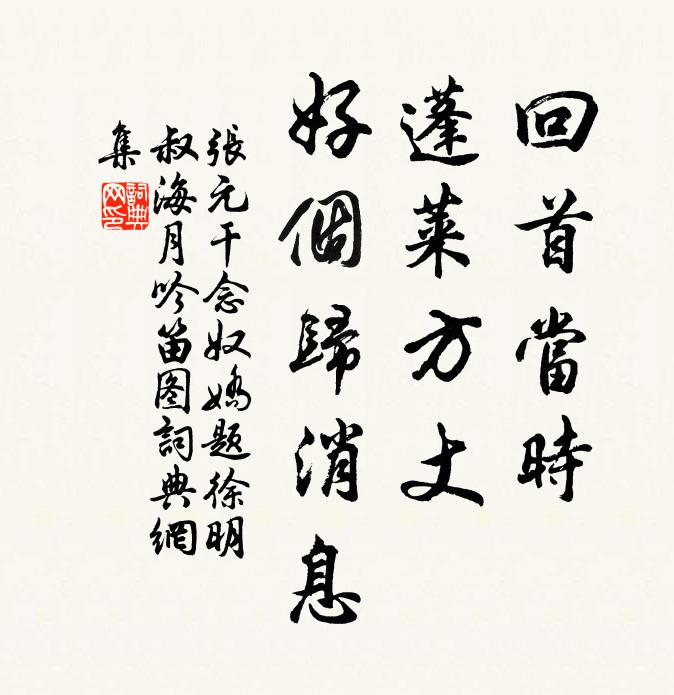 回首當時
蓬萊方丈
好個歸消息
張元干念奴嬌題徐明
叔海月吟笛图詞典網
集
詞典
网印